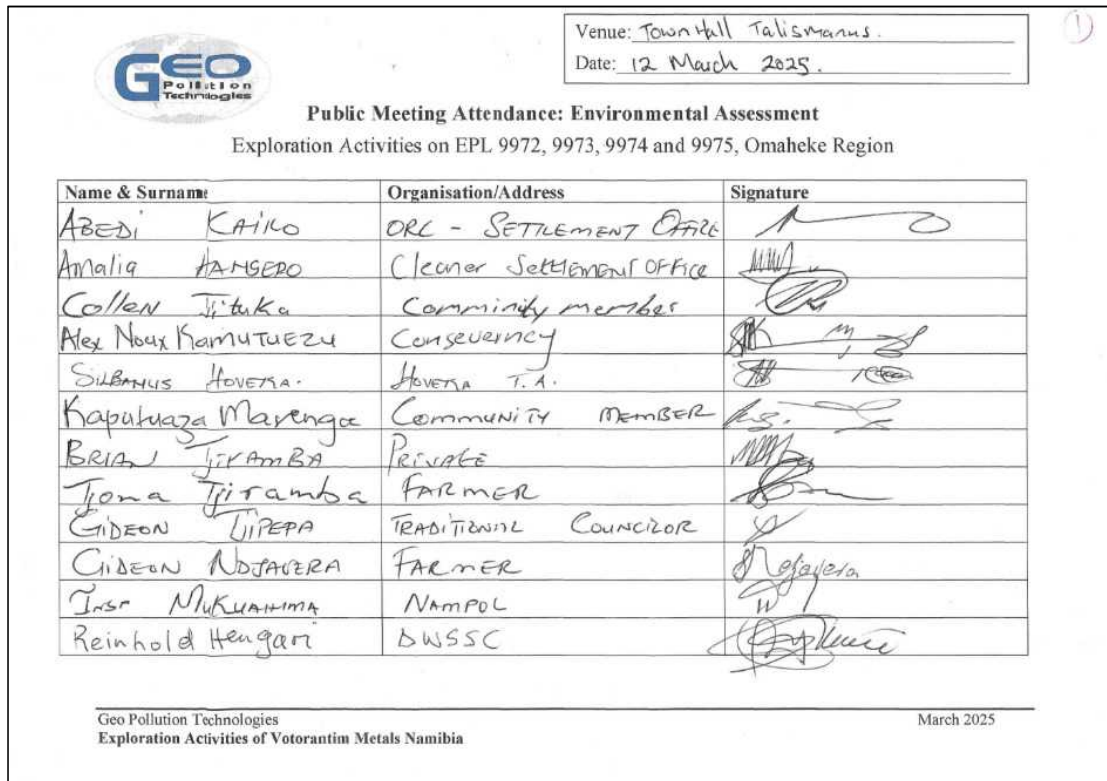 Venue: Town Hall Talismanus.
①
Date: 12 March 2025.
GEO
Pollution
Technologies
Public Meeting Attendance: Environmental Assessment
Exploration Activities on EPL 9972, 9973, 9974 and 9975, Omaheke Region
Name & Surname Organisation/Address Signature
ABEDI KAIKO ORC - SETTLEMENT OFFICE
Amalia HAMSERO Cleaner SettlEMENT OFFICE
Collen Tjituka Comminity member
Alex Noux KamuTUEZU Conseverncy
SILBANUS HOVEKA. HOVEKA T.A.
Kaputuaza Marenga COMMUNITY MEMBER
BRIAN TJIRAMBA PRIVATE
Tjona Tjiramba FARMER
GIDEON TJIPEPA TRADITIONAL COUNCILOR
GIDEON NDJAVERA FARMER Ndjavera
INSP MUKUAHIMA NAMPOL
Reinhold Hengari DWSSC
Geo Pollution Technologies March 2025
Exploration Activities of Votorantim Metals Namibia